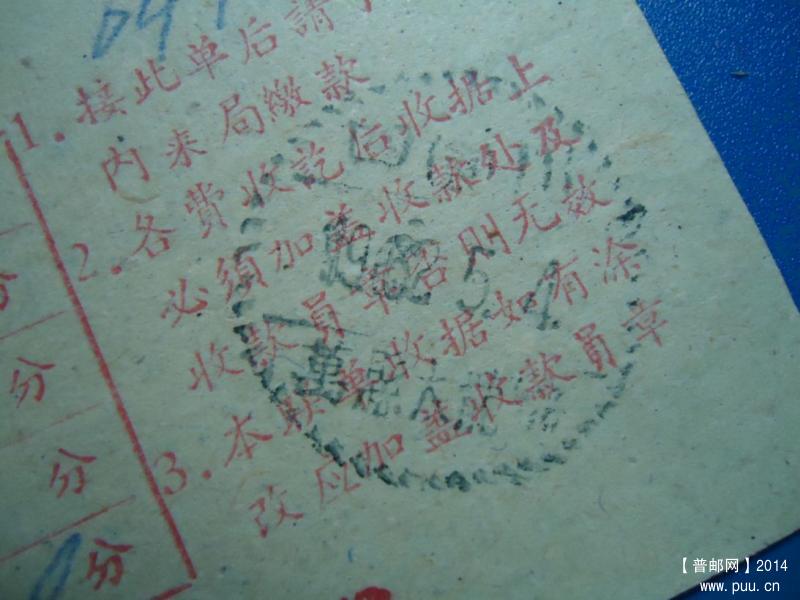 1. 接此单后請
内来局缴款
2. 各費收訖后收据上
必須加盖收款处及
收款員章否则无效
3. 本联单收据如有涂
改应加盖收款員章
分
分
分
分
5
【普邮网】2014
www.puu.cn